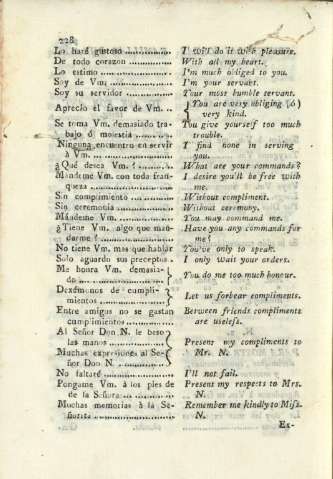 228
Lo haré gustoso ............ I will do it with pleasure.
De todo corazon ............ With all my heart.
Lo estimo ............ I'm much obliged to you.
Soy de Vm. ............ I'm your servant.
Soy su servidor ............ Your most humble servant.
Aprecio el favor de Vm. .. { You are very obliging (ó)
very kind.
Se toma Vm. demasiado tra- You give yourself too much
bajo ó molestia ............ trouble.
Ninguna encuentro en servir I find none in serving
à Vm. ............ you.
¿ Qué desea Vm. ? ......... What are your commands?
Mandeme Vm. con toda fran- I desire you'll be free with
queza ............ me.
Sin cumplimiento ............ Without compliment.
Sin ceremonia ............ Without ceremony.
Mándeme Vm. ............ You may command me.
¿ Tiene Vm. algo que man- Have you any commands for
darme ? ............ me?
No tiene Vm. mas que hablar You've only to speak.
Solo aguardo sus preceptos . I only wait your orders.
Me honra Vm. demasia- }
do ............ } You do me too much honour.
Dexémonos de cumpli- }
mientos ............ } Let us forbear compliments.
Entre amigos no se gastan Between friends compliments
cumplimientos ............ are useless.
Al Señor Don N. le beso }
las manos ............ } Present my compliments to
Muchas expresiones al Se- } Mr. N.
ñor Don N. ............ }
No faltaré ............ I'll not fail.
Pongame Vm. à los pies de Present my respects to Mrs.
de la Señora ............ N.
Muchas memorias à la Se- Remember me kindly to Miss.
ñorita ............ N.
Ex-